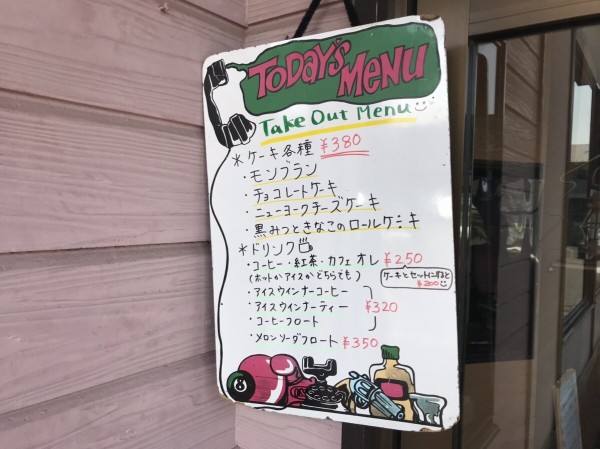 TODAY'S MENU
Take Out Menu
*ケーキ各種 ¥380
・モンブラン
・チョコレートケーキ
・ニューヨークチーズケーキ
・黒みつときなこのロールケーキ
*ドリンク
・コーヒー・紅茶・カフェオレ ¥250
(ホットかアイスかどちらでも)
ケーキとセットにすると
¥200
・アイスウインナーコーヒー
・アイスウインナーティー ¥320
・コーヒーフロート
・メロンソーダフロート ¥350
8